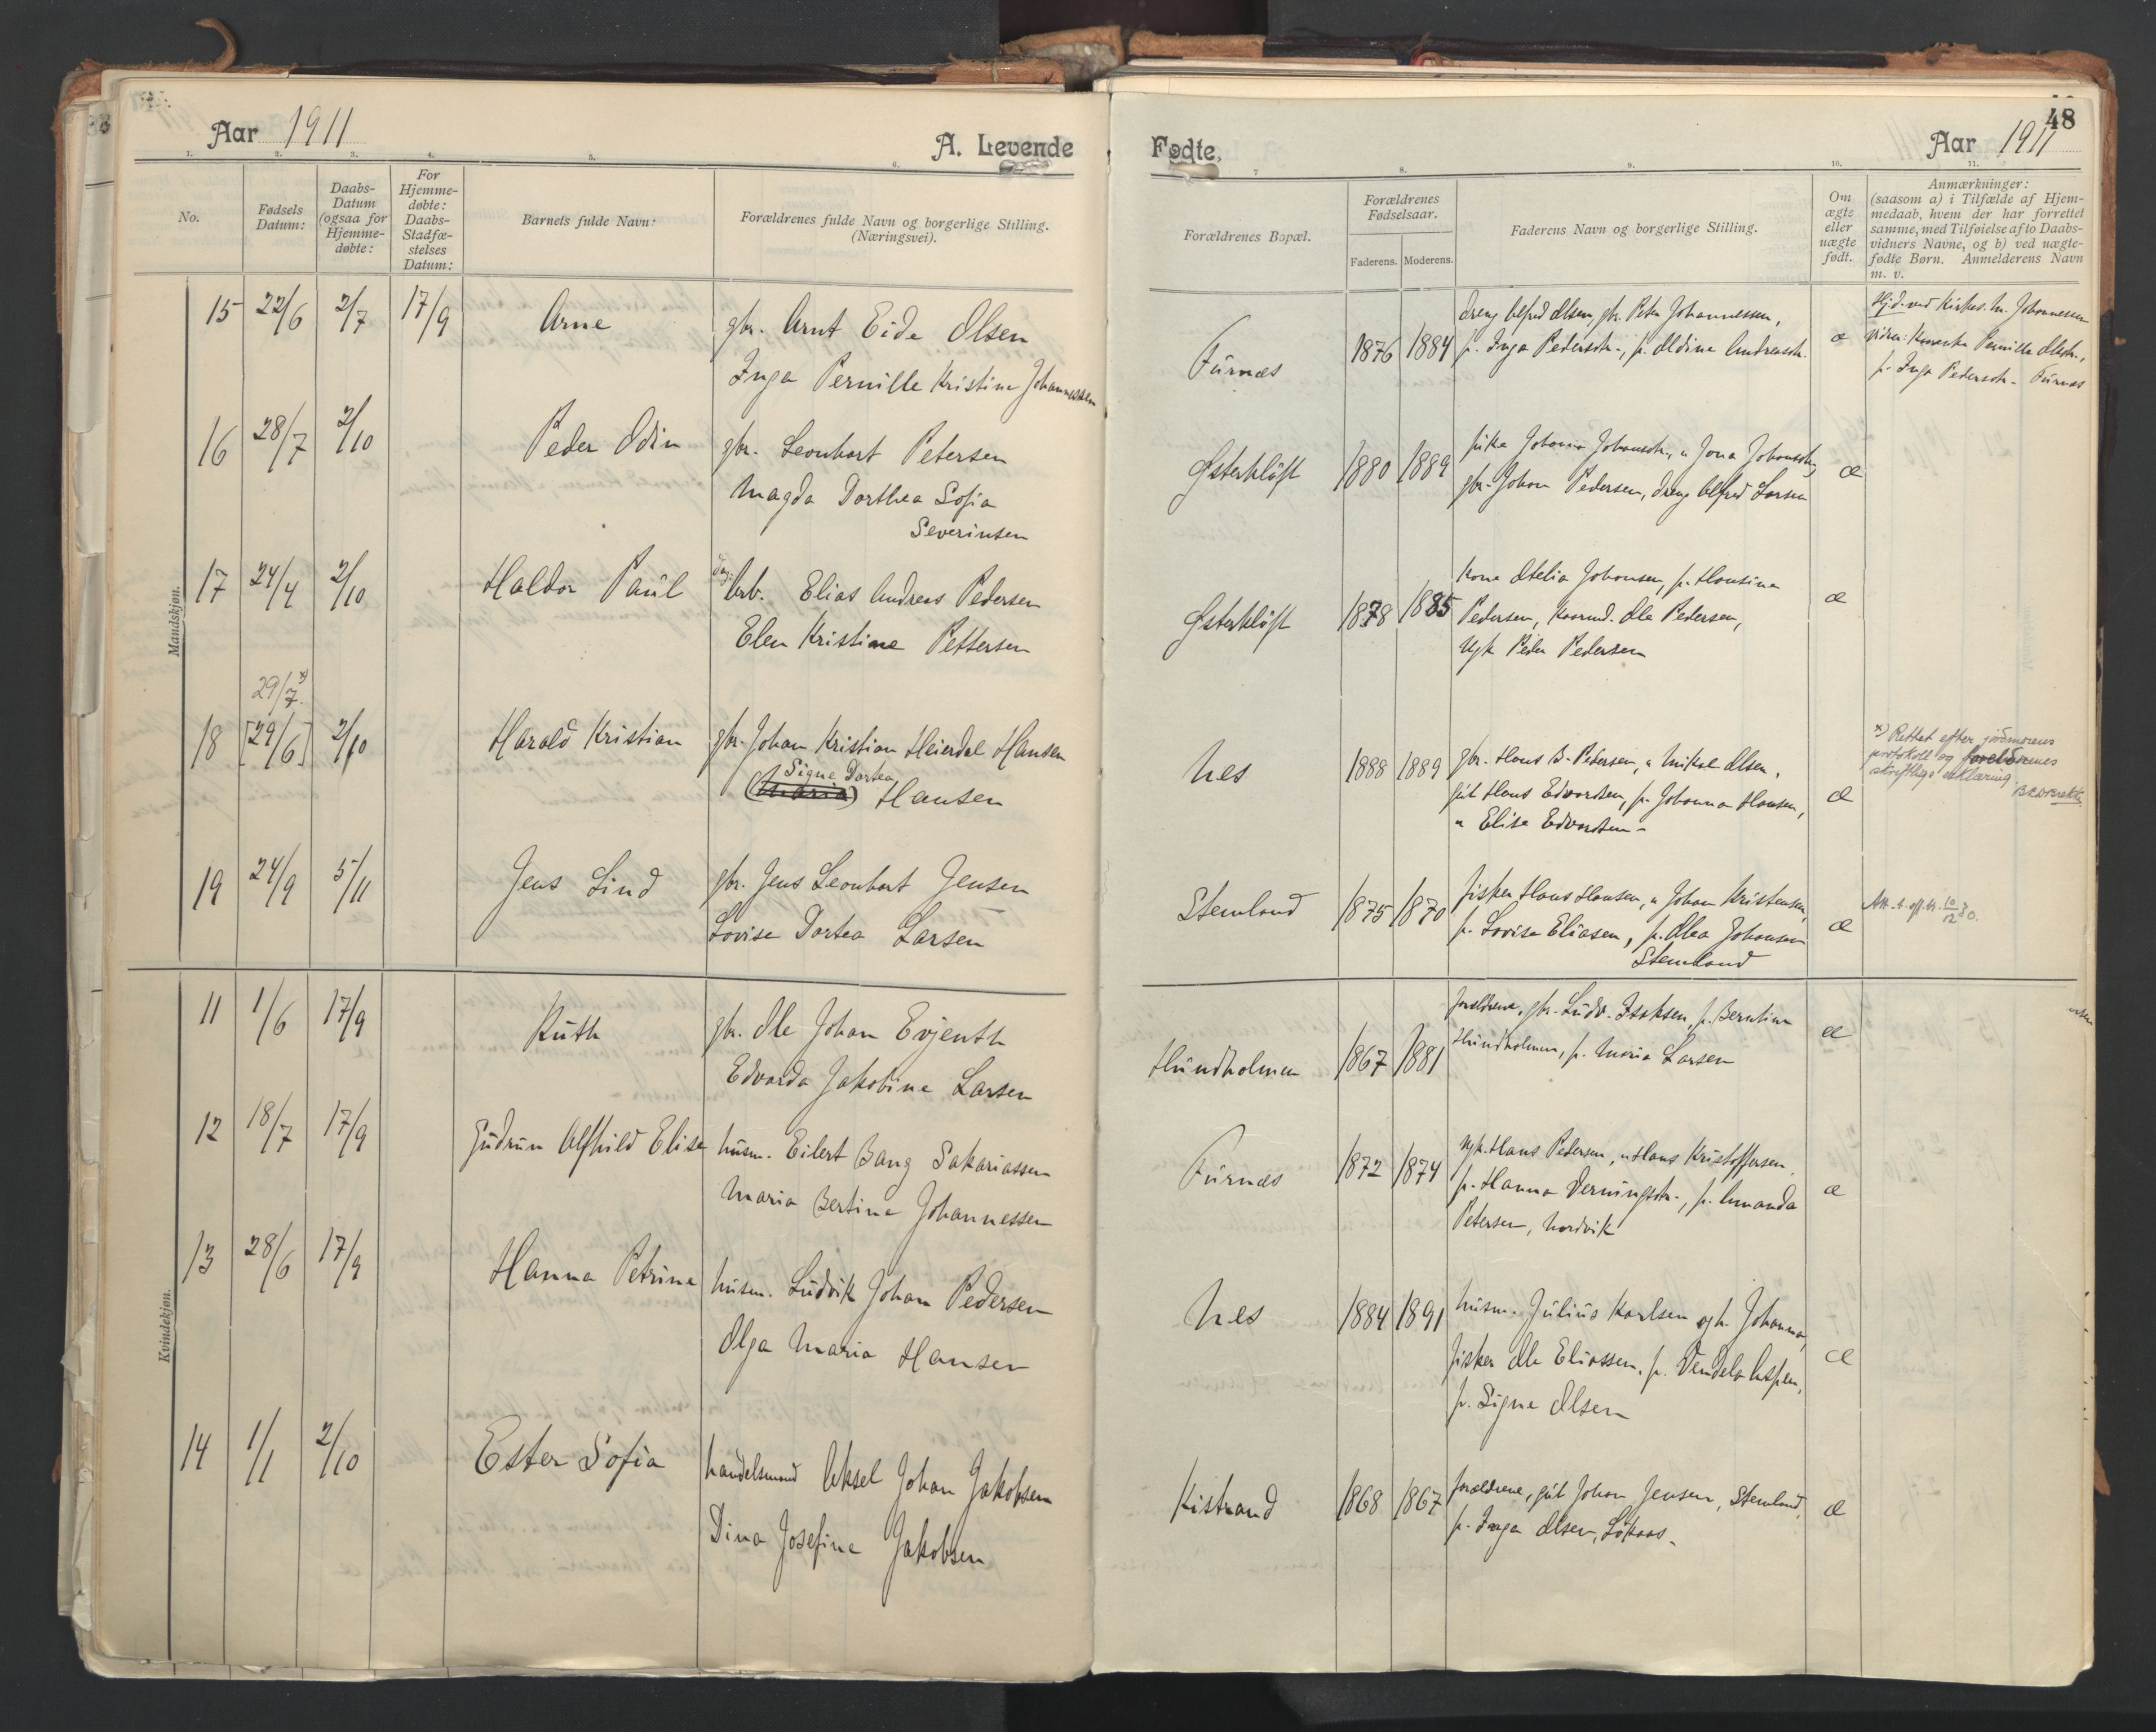 Aar 1911
A. Levende
1. 2. 3. 4. 5. 6.
No.
Fødsels Datum:
Daabs-Datum (ogsaa for Hjemme-døbte:
For Hjemme-døbte: Daabs-Stadfæ-stelses Datum:
Barnets fulde Navn:
Forældrenes fulde Navn og borgerlige Stilling. (Næringsvei).
Mandskjøn.
15 22/6 2/7 17/9 Arne gbr. Arnt Eide Olsen
Inga Pernille Kristine Johannessen
16 28/7 2/10 Peder Odin gbr. Leonhart Petersen
Magda Dorthea Sofia
Severinsen
17 24/4 2/10 Haldor Paul Arb. Elias Andreas Pedersen
Elen Kristine Pettersen
29/7 x)
18 [29/6] 2/10 Harald Kristian gbr. Johan Kristian Heierdal Hansen
Signe Dortea
(Maria) Hansen
19 24/9 5/11 Jens Lind gbr. Jens Leonhart Jensen
Lovise Dortea Larsen
Kvindekjøn.
11 1/6 17/9 Ruth gbr. Ole Johan Evjenth
Edvarda Jakobine Larsen
12 18/7 17/9 Gudrun Alfhild Elise husm. Eilert Bang Sakariassen
Maria Bertine Johannessen
13 28/6 17/9 Hanna Petrine husm. Ludvik Johan Pedersen
Olga Maria Hansen
14 1/1 2/10 Ester Sofia handelsmand Aksel Johan Jakobsen
Dina Josefine Jakobsen
48
Fødte.
Aar 1911
7 8. 9. 10. 11.
Forældrenes Bopæl.
Forældrenes Fødselsaar.
Faderens. Moderens.
Faderens Navn og borgerlige Stilling.
Om ægte eller uægte født.
Anmærkninger:
(saasom a) i Tilfælde af Hjem-
medaab, hvem der har forrettet
samme, med Tilføielse af to Daabs-
vidners Navne, og b) ved uægte-
fødte Børn. Anmelderens Navn
m. v.
dreng Alfred Olsen, gbr. Peter Johannessen,
Furnes 1876 1884 p. Inga Pedersdtr., p. Oldine Andreasdtr. æ
Hjd. ved Kirkes. M. Johannessen
vidner: Pernille Olsdtr.,
p. Inga Pedersdtr. Furnes
pike Johanna Johansdtr., " Jona Johansdtr,
Østerkløft 1880 1889 gbr. Johan Pedersen, dreng Alfred Larsen æ
Kone Otelia Johansen, p. Hansina
Østerkløft 1878 1885 Pedersen, Kaarmd. Ole Pedersen, æ
Ugk Peder Pedersen
Nes 1888 1889 gbr. Hans B. Pedersen, " Mikal Olsen,
gut Hans Edvardsen, p. Johanna Hansen, æ
" Elise Edvardsen
x) Rettet efter jordmorens
protokoll og foreldrenes
skriftlige erklæring.
Stemland 1875 1870 fisker Hans Hansen, " Johan Kristensen,
p. Lovise Eliasen, p. Olea Johansen æ
Stemland
Att. 10/12 30.
forældrene, gbr. Ludv. Isaksen, p. Berntine
Hundholmen 1867 1881 Hundholmen, p. Maria Larsen æ
Furnes 1872 1874 ugk. Hans Pedersen, " Hans Kristoffersen,
p. Hanna Verningsdtr., p. Amanda æ
Petersen, Nordvik
Nes 1884 1891 husm. Julius Karlsen og h. Johanna,
fisker Ole Eliassen, p. Vendela Aspen, æ
p. Signe Olsen
Kistrand 1868 1867 forældrene, gut Johan Jensen, Stemland, æ
p. Inga Olsen, Løkaas.